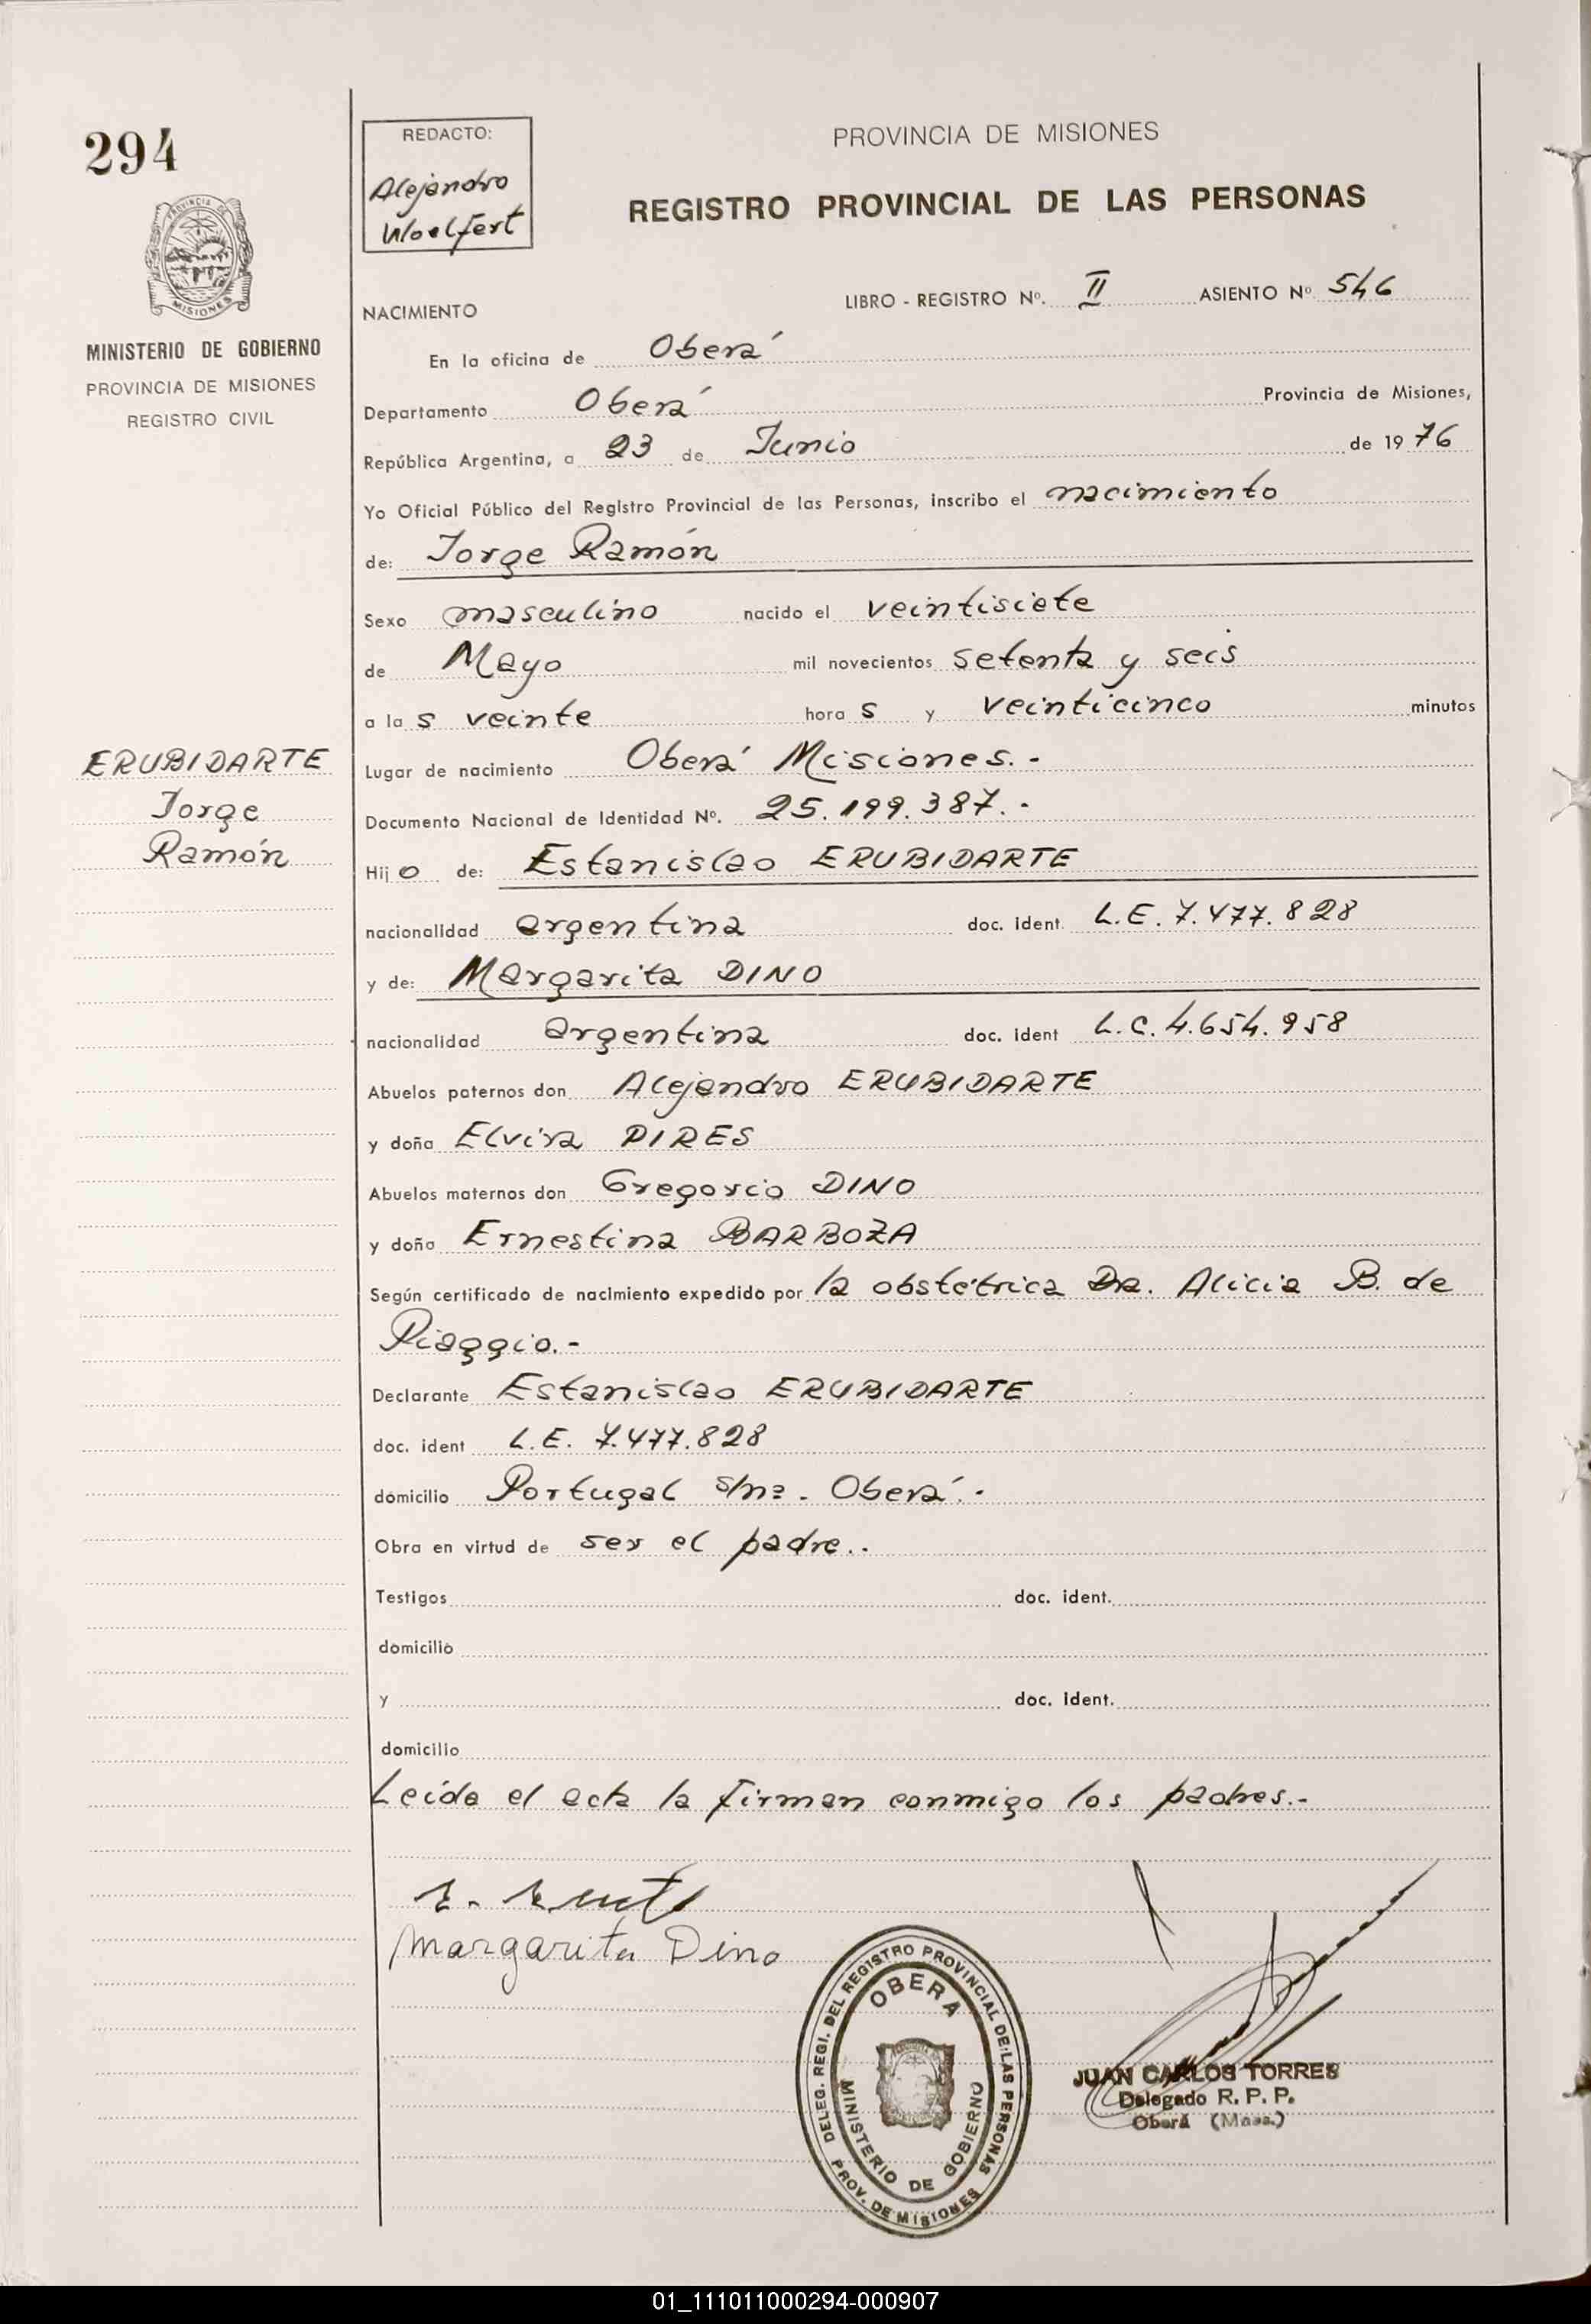 294
PROVINCIA DE MISIONES
MINISTERIO DE GOBIERNO
PROVINCIA DE MISIONES
REGISTRO CIVIL
ERUBIDARTE
Jorge
Ramón
REDACTO:
Alejandro
Woolfert
PROVINCIA DE MISIONES
REGISTRO PROVINCIAL DE LAS PERSONAS
LIBRO - REGISTRO Nº. II ASIENTO Nº 546
NACIMIENTO
En la oficina de Oberá
Departamento Oberá Provincia de Misiones,
República Argentina, a 23 de Junio de 1976
Yo Oficial Público del Registro Provincial de las Personas, inscribo el nacimiento
de: Jorge Ramón
Sexo masculino nacido el veintisiete
de Mayo mil novecientos setenta y seis
a las veinte horas y veinticinco minutos
Lugar de nacimiento Oberá Misiones.-
Documento Nacional de Identidad Nº. 25.199.387.-
Hijo de: Estanislao ERUBIDARTE
nacionalidad argentina doc. ident. L.E. 7.477.828
y de: Margarita DINO
nacionalidad argentina doc. ident L.C. 4.654.958
Abuelos paternos don Alejandro ERUBIDARTE
y doña Elvira PIRES
Abuelos maternos don Gregorio DINO
y doña Ernestina BARBOZA
Según certificado de nacimiento expedido por la obstétrica Dra. Alicia B. de
Piaggio.-
Declarante Estanislao ERUBIDARTE
doc. ident L.E. 7.477.828
domicilio Portugal s/nº. Oberá.-
Obra en virtud de ser el padre..
Testigos doc. ident.
domicilio
y doc. ident.
domicilio
Leída el acta la firman conmigo los padres.-
Margarita Dino
DELEG. REGI. DEL REGISTRO PROVINCIAL DE LAS PERSONAS
OBERA
MINISTERIO DE GOBIERNO
PROV. DE MISIONES
JUAN CARLOS TORRES
Delegado R. P. P.
Oberá (Mnes.)
01_111011000294-000907